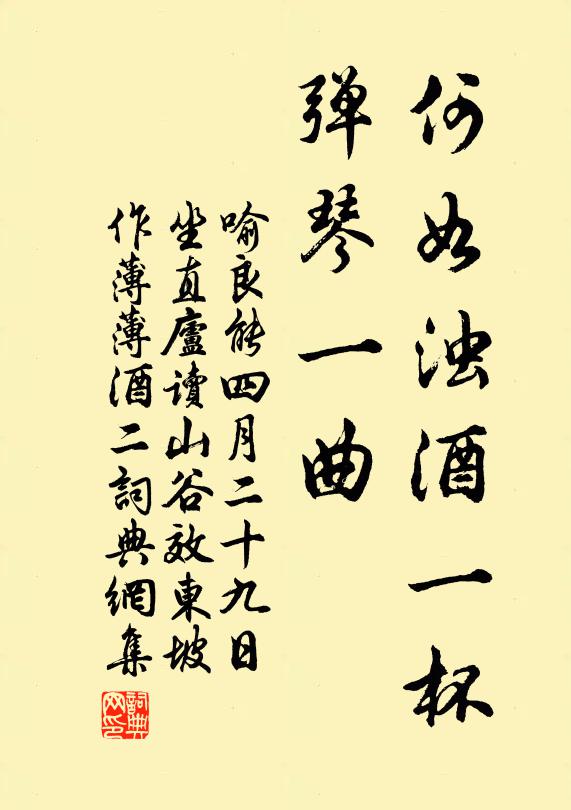 何如浊酒一杯
弹琴一曲
喻良能四月二十九日
坐直廬讀山谷效東坡
作薄薄酒二詞典網集
詞典
网印